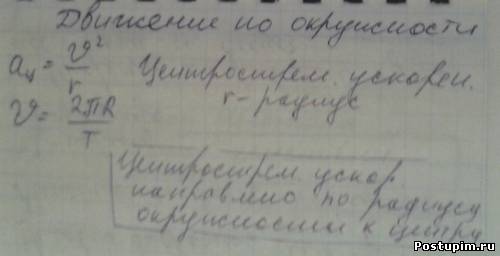 Движение по окружности
aц = v²/r Центрострем. ускорен.
r - радиус
v = 2πR/T
Центрострем. ускор.
направлено по радиусу
окружности к центру
Postupim.ru